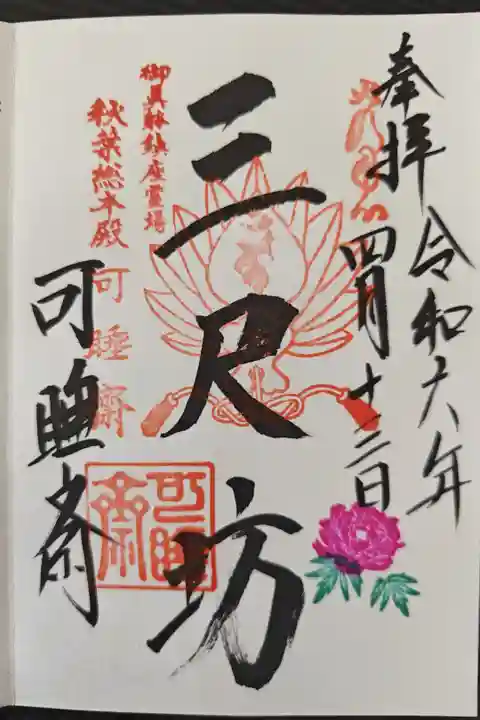 奉拝
令和六年
四月十二日
三尺坊
御真躰鎮座霊場
秋葉総本殿
可睡齋
可睡斎
可睡斎